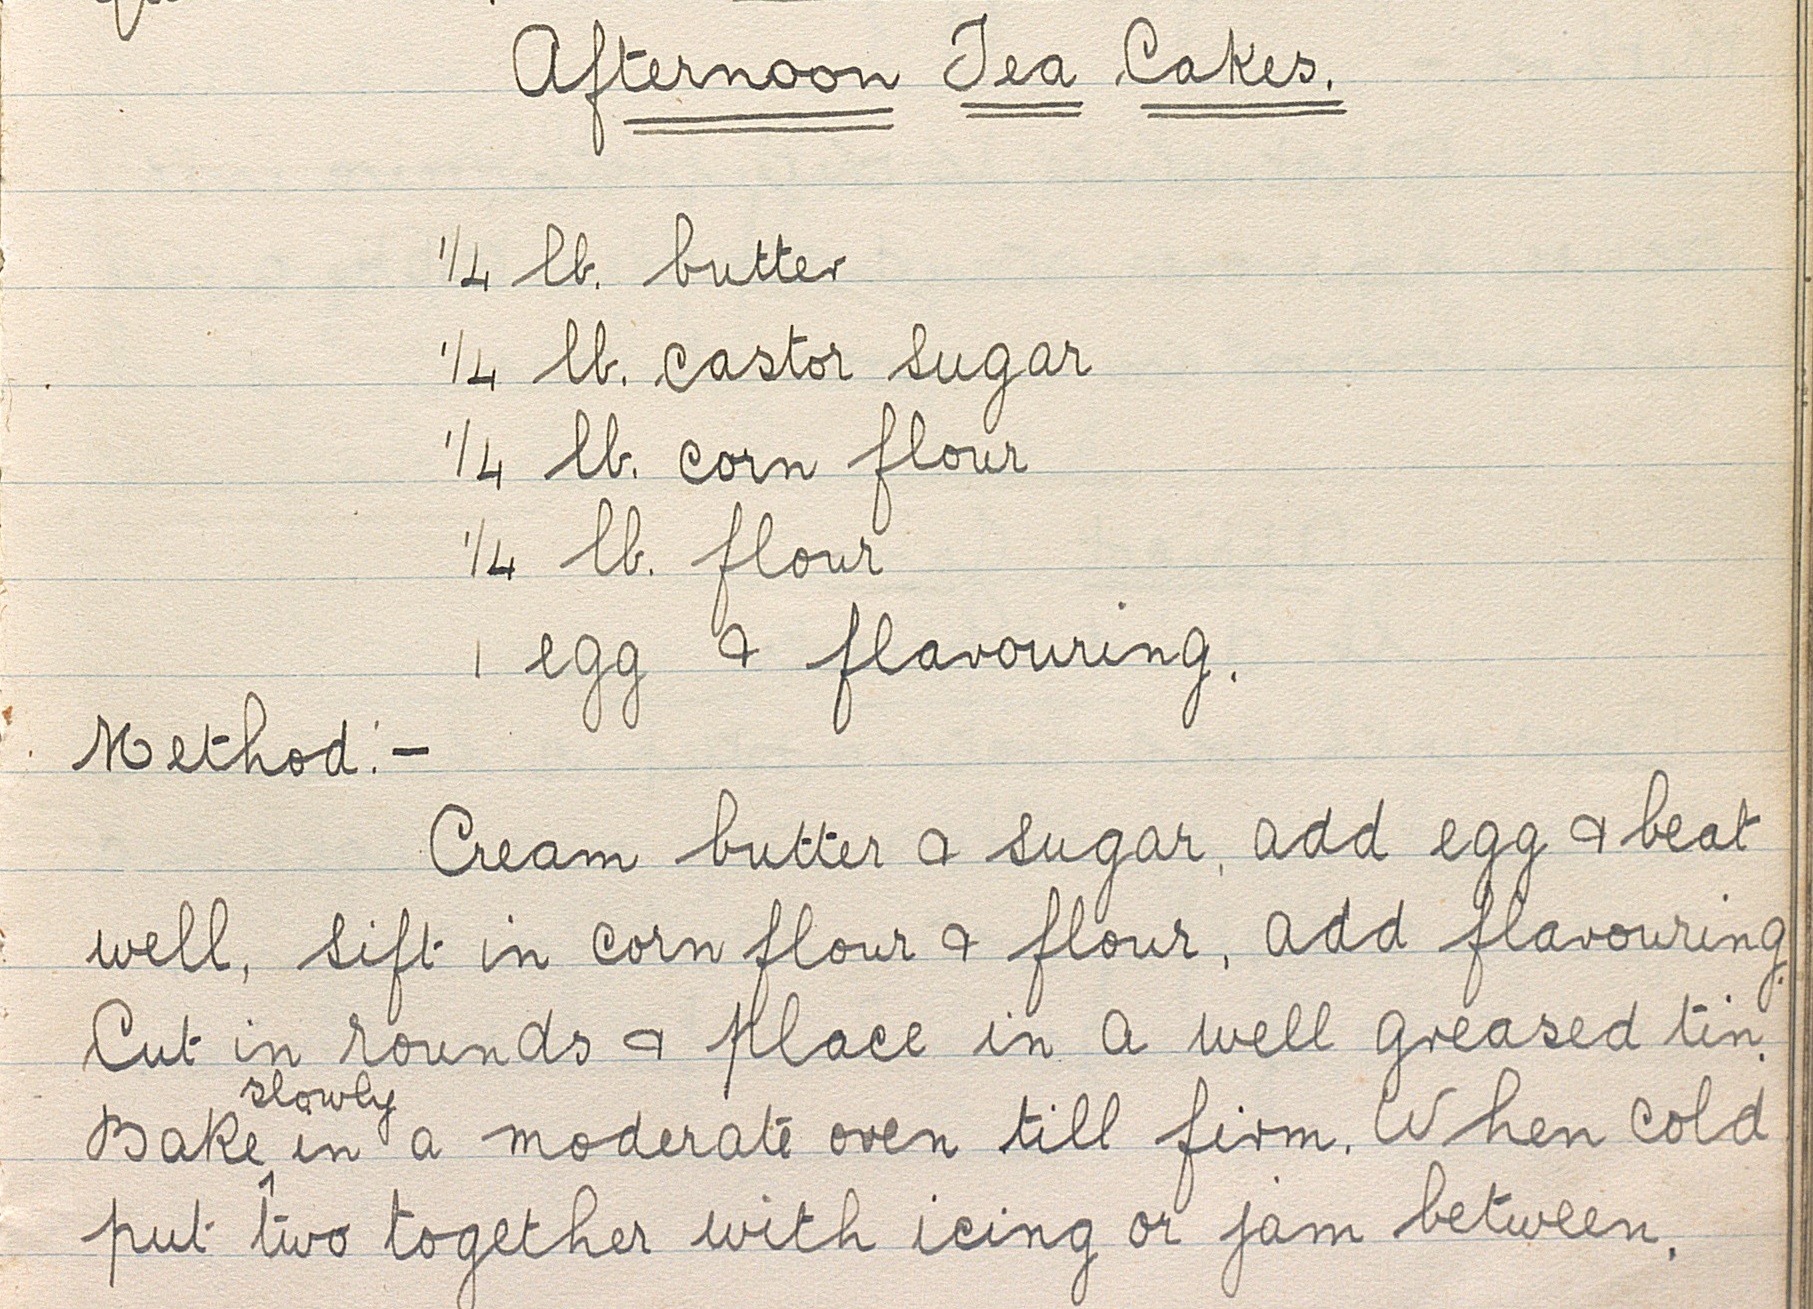 Afternoon Tea Cakes.
1/4 lb. butter
1/4 lb. castor sugar
1/4 lb. corn flour
1/4 lb. flour
1 egg & flavouring.
Method:-
Cream butter & sugar, add egg & beat
well, sift in corn flour & flour, add flavouring.
Cut in rounds & place in a well greased tin.
slowly
Bake ^ in a moderate oven till firm. When cold
put two together with icing or jam between.